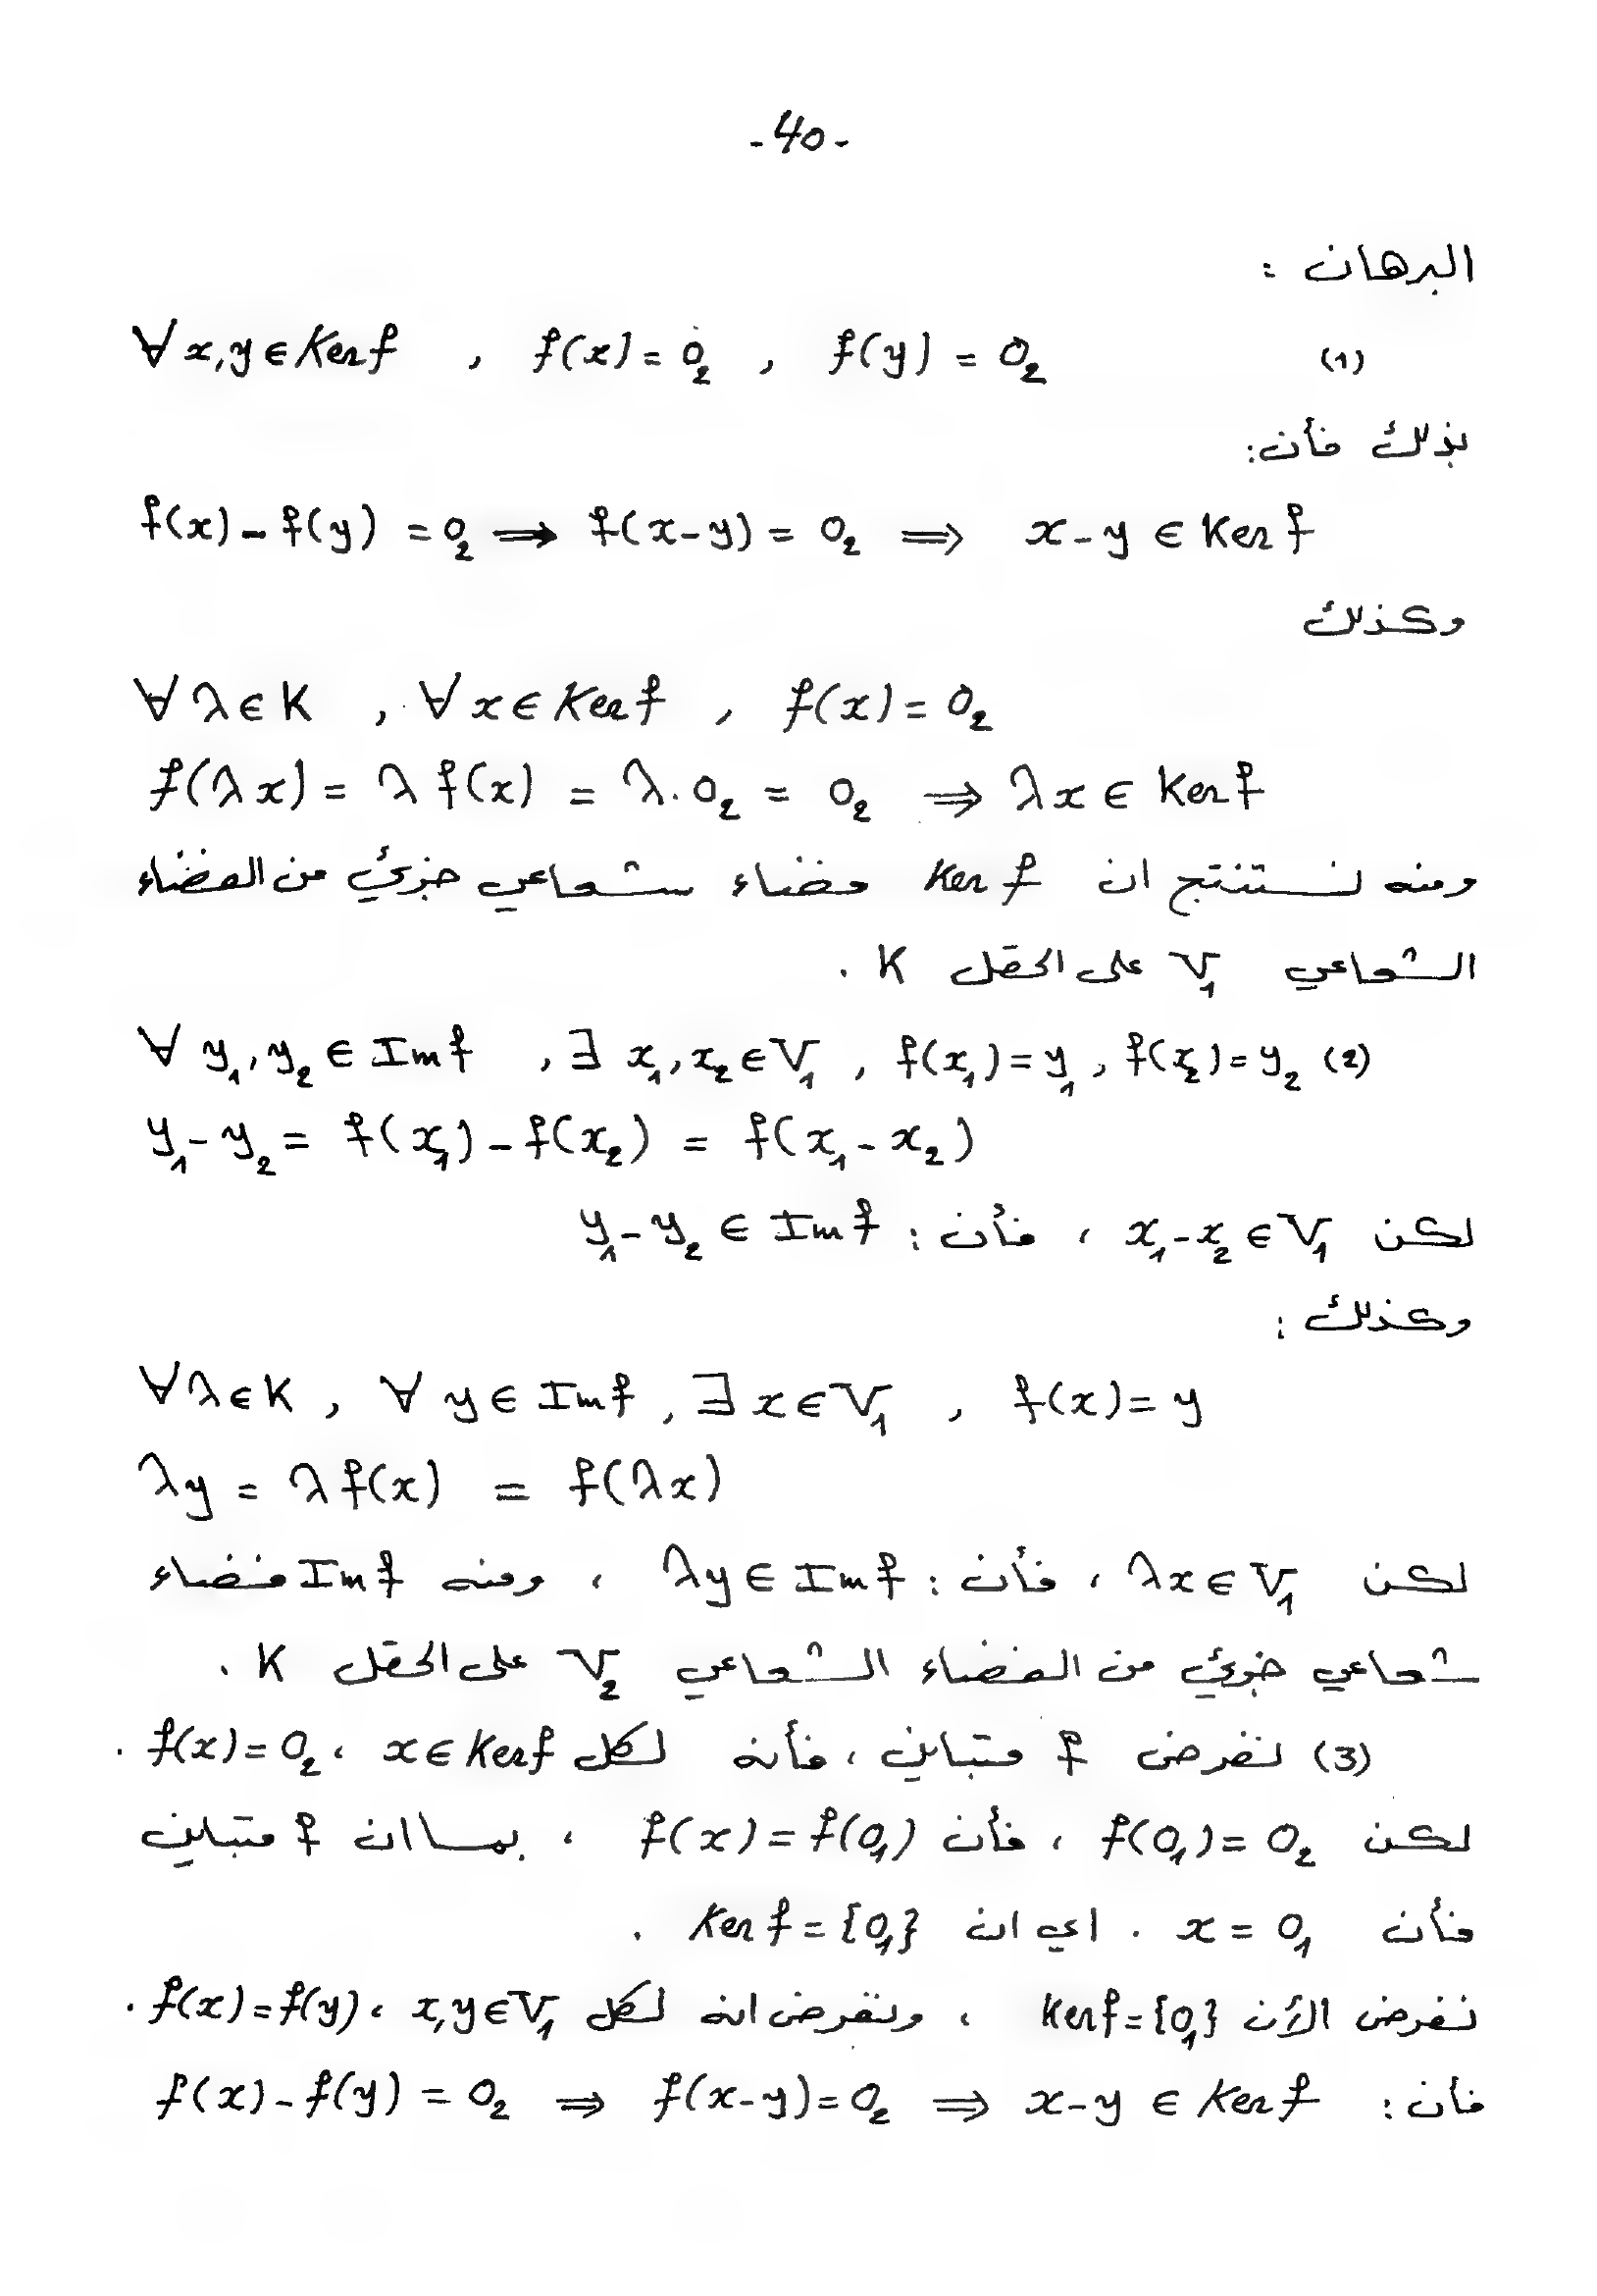 -40-
البرهان :
(1) ∀ x,y ∈ Ker f , f(x) = 0₂ , f(y) = 0₂
بذلك فأن:
f(x) - f(y) = 0₂ ⟹ f(x-y) = 0₂ ⟹ x-y ∈ Ker f
وكذلك
∀ λ ∈ K , ∀ x ∈ Ker f , f(x) = 0₂
f(λx) = λ f(x) = λ.0₂ = 0₂ ⟹ λx ∈ Ker f
ومنه نستنتج ان Ker f فضاء شعاعي جزئي من الفضاء
الشعاعي V₁ على الحقل K .
(2) ∀ y₁,y₂ ∈ Im f , ∃ x₁,x₂ ∈ V₁ , f(x₁) = y₁ , f(x₂) = y₂
y₁ - y₂ = f(x₁) - f(x₂) = f(x₁ - x₂)
لكن x₁-x₂ ∈ V₁ ، فأن : y₁-y₂ ∈ Im f
وكذلك :
∀ λ ∈ K , ∀ y ∈ Im f , ∃ x ∈ V₁ , f(x) = y
λy = λ f(x) = f(λx)
لكن λx ∈ V₁ ، فأن : λy ∈ Im f ، ومنه Im f فضاء
شعاعي جزئي من الفضاء الشعاعي V₂ على الحقل K .
(3) نفرض f متباين ، فأنه لكل x ∈ Ker f ، f(x) = 0₂ .
لكن f(0₁) = 0₂ ، فأن f(x) = f(0₁) ، بما ان f متباين
فأن x = 0₁ . اي ان Ker f = {0₁} .
نفرض الآن Ker f = {0₁} ، ونفرض انه لكل x,y ∈ V₁ ، f(x) = f(y) .
فأن : f(x) - f(y) = 0₂ ⟹ f(x-y) = 0₂ ⟹ x-y ∈ Ker f